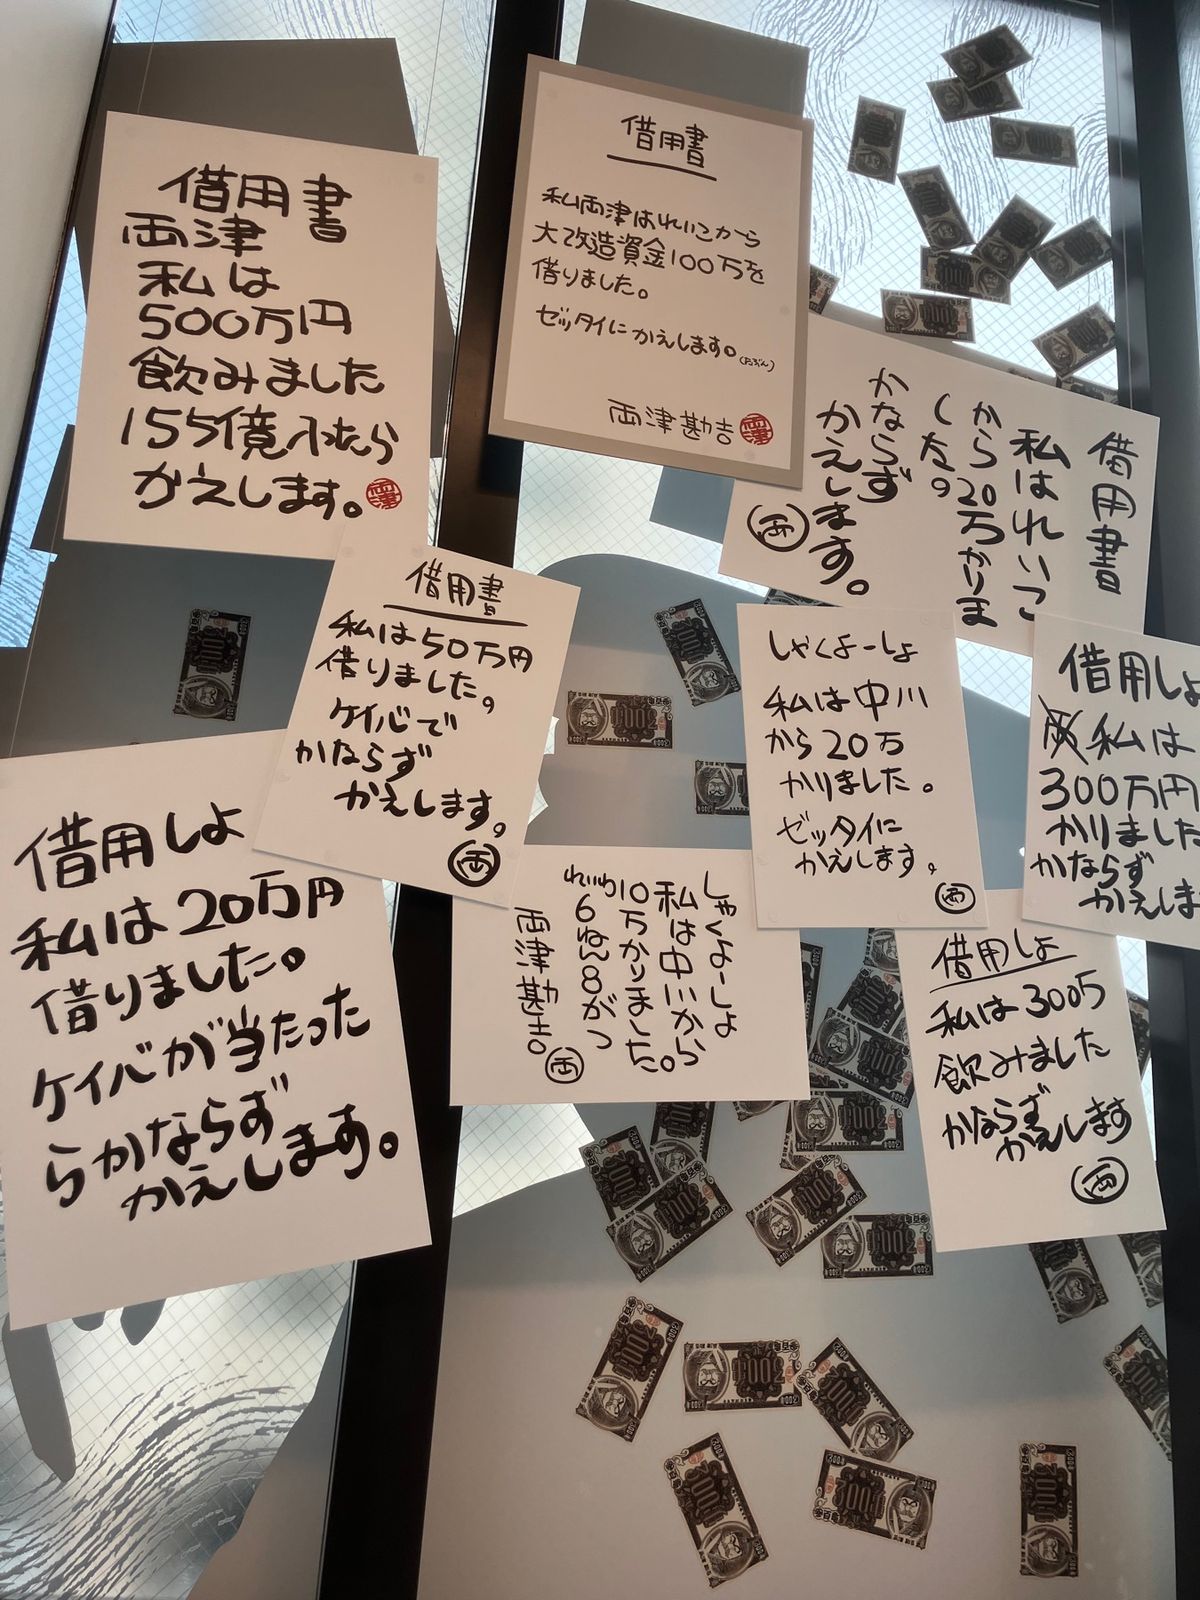 借用書
両津
私は
500万円
飲みました
155億入ったら
かえします。
両津
借用書
私両津はれいこから
大改造資金100万を
借りました。
ゼッタイにかえします。(たぶん)
両津勘吉
両津
借用書
私はれいこ
から20万かりま
した。
かならず
かえします。
両
借用書
私は50万円
借りました。
ケイバで
かならず
かえします。
両
しゃくよーしょ
私は中川
から20万
かりました。
ゼッタイに
かえします。
両
借用しょ
私は
300万円
かりました
かならず
かえしま
借用しよ
私は20万円
借りました。
ケイバが当たった
らかならず
かえします。
しゃくよーしょ
私は中川から
10万かりました。
れいわ
6ねん8がつ
両津勘吉。
両
借用しょ
私は3005
飲みました
かならず
かえします
両